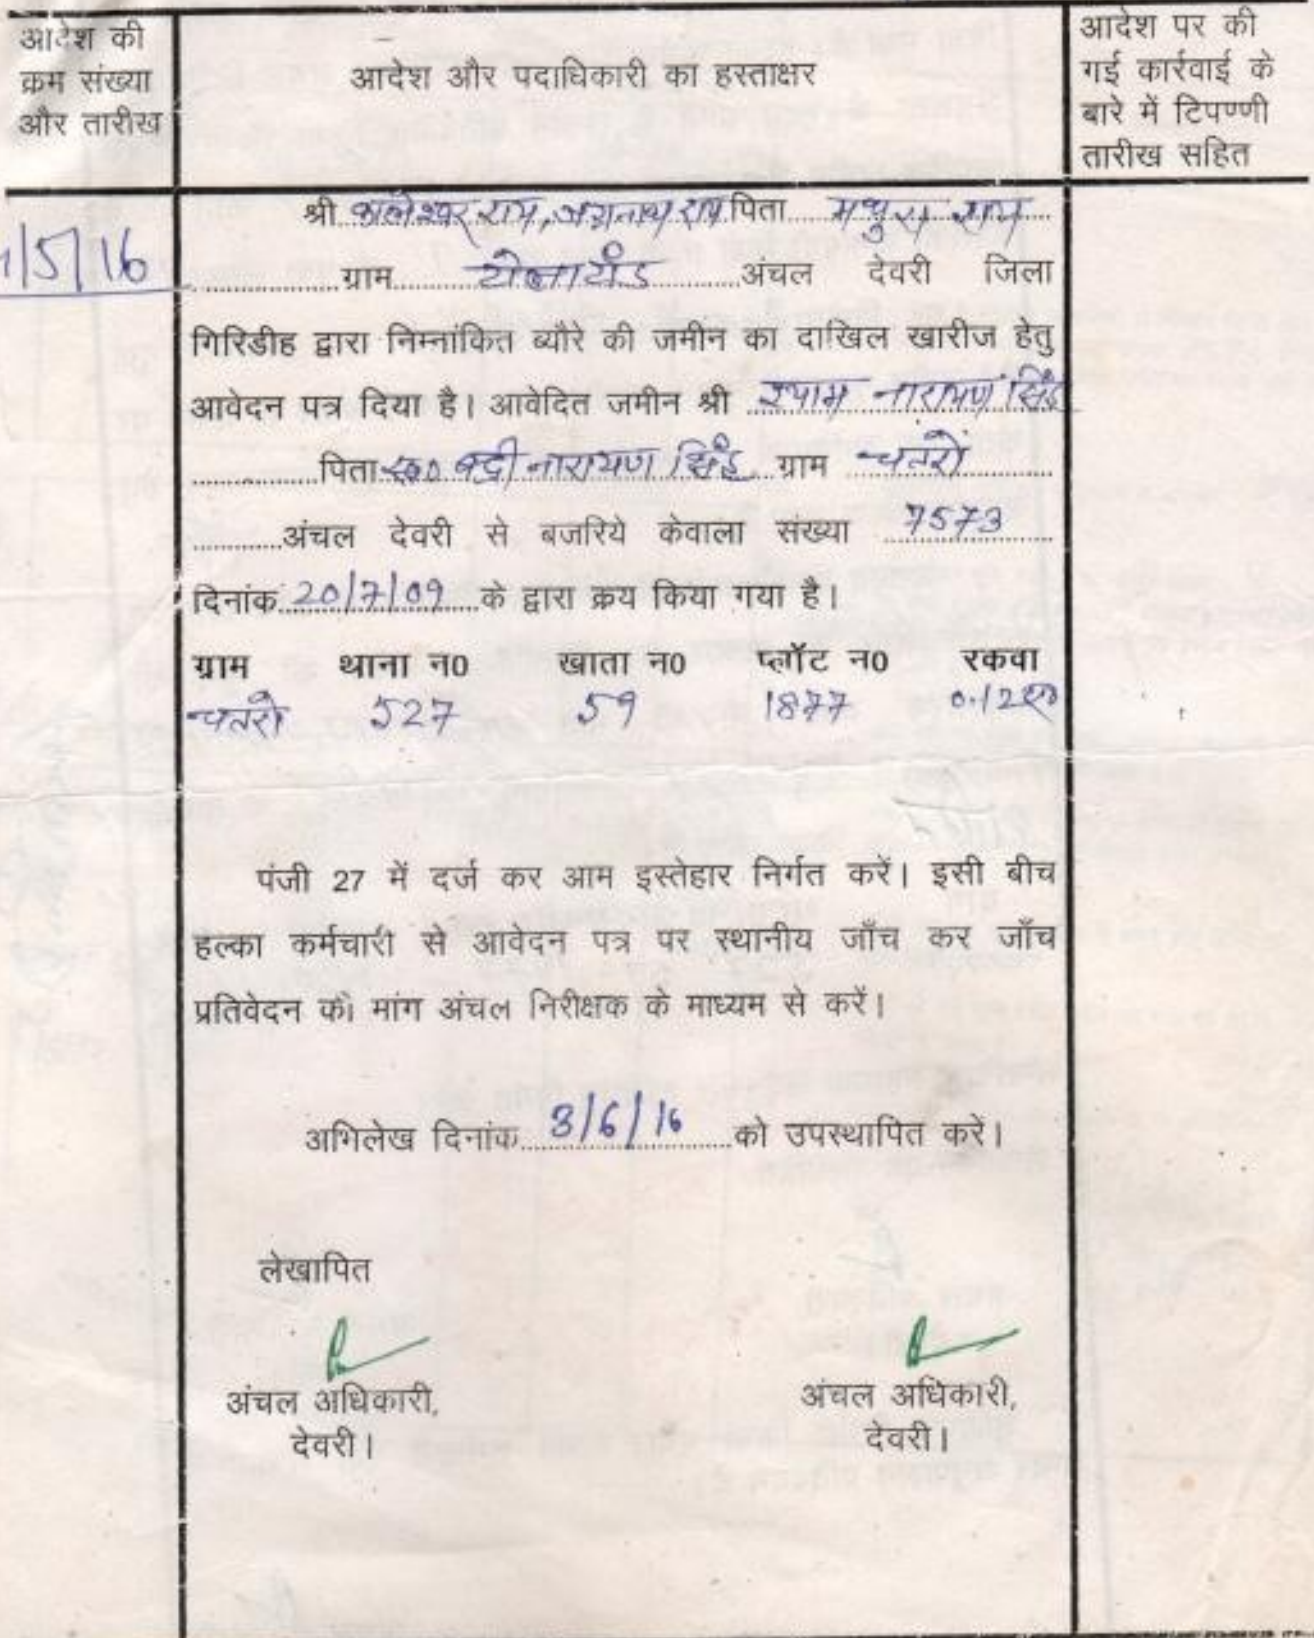 आदेश की
क्रम संख्या
और तारीख
आदेश और पदाधिकारी का हस्ताक्षर
आदेश पर की
गई कार्रवाई के
बारे में टिपण्णी
तारीख सहित
/5/16
श्री कालेश्वर राम, जगनाथ राम पिता मथुरा राम
ग्राम अंचल देवरी जिला
गिरिडीह द्वारा निम्नांकित ब्यौरे की जमीन का दाखिल खारीज हेतु
आवेदन पत्र दिया है। आवेदित जमीन श्री श्याम नारायण सिंह
पिता स्व0 बद्री नारायण सिंह ग्राम चतरो
अंचल देवरी से बजरिये केवाला संख्या 7573
दिनांक 20/7/09 के द्वारा क्रय किया गया है।
ग्राम थाना न0 खाता न0 प्लॉट न0 रकवा
चतरो 527 59 1877 0.12ए0
पंजी 27 में दर्ज कर आम इस्तेहार निर्गत करें। इसी बीच
हल्का कर्मचारी से आवेदन पत्र पर स्थानीय जाँच कर जाँच
प्रतिवेदन की मांग अंचल निरीक्षक के माध्यम से करें।
अभिलेख दिनांक 3/6/16 को उपस्थापित करें।
लेखापित
अंचल अधिकारी,
देवरी।
अंचल अधिकारी,
देवरी।